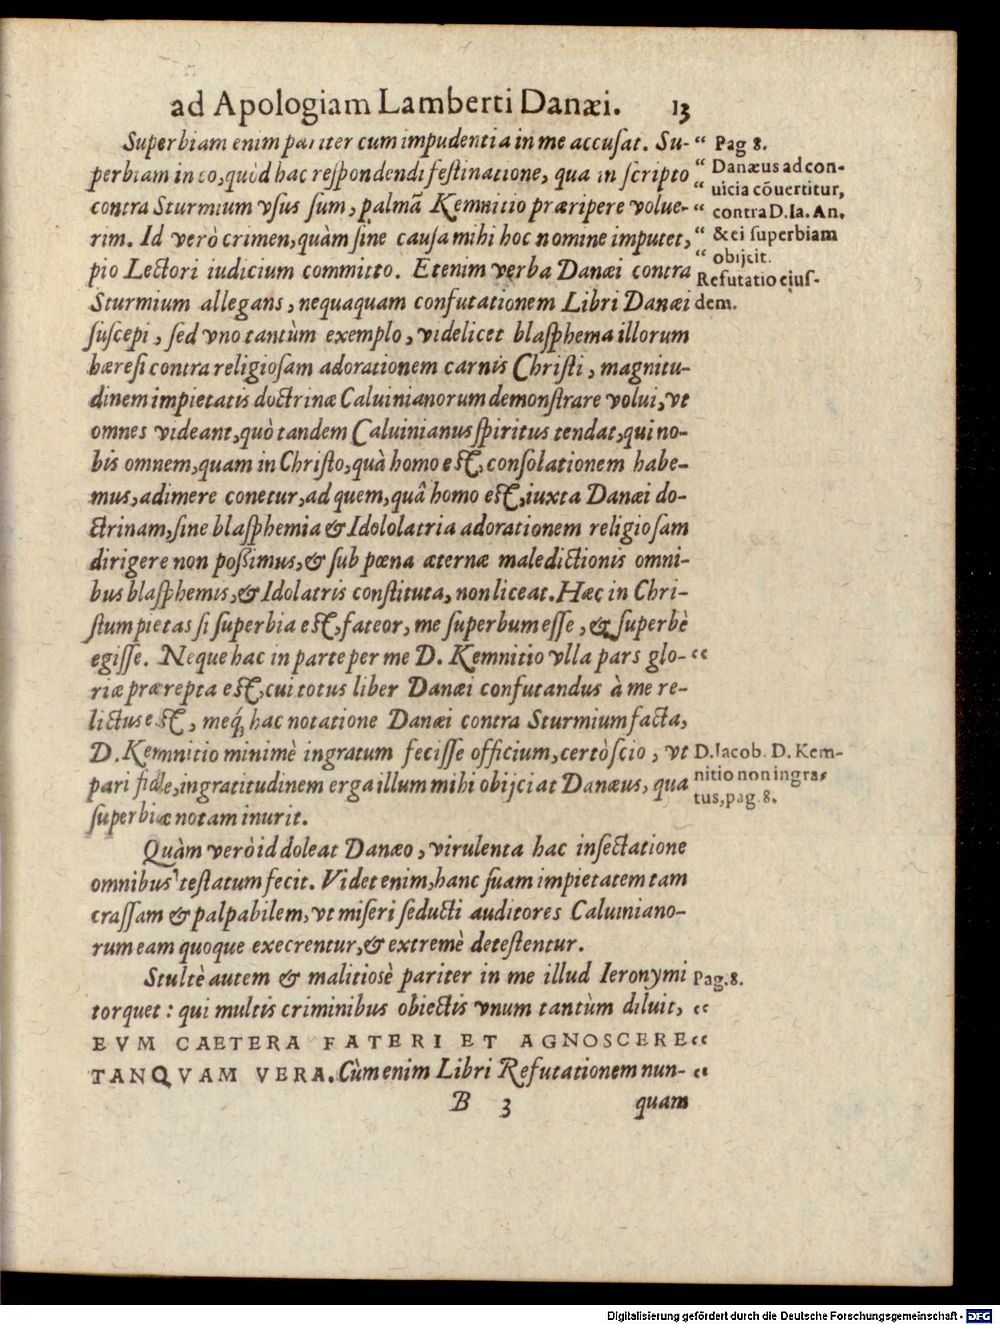 ad Apologiam Lamberti Danæi. 13
Superbiam enim pariter cum impudentia in me accusat. Su- “
perbiam in eo, quòd hac respondendi festinatione, qua in scripto “
contra Sturmium vsus sum, palmā Kemnitio præripere volue- “
rim. Id verò crimen, quàm sine causa mihi hoc nomine imputet, “
pio Lectori iudicium committo. Etenim verba Danæi contra “
Sturmium allegans, nequaquam confutationem Libri Danæi
suscepi, sed vno tantùm exemplo, videlicet blasphema illorum
hæresi contra religiosam adorationem carnis Christi, magnitu-
dinem impietatis doctrinæ Caluinianorum demonstrare volui, vt
omnes videant, quò tandem Caluinianus spiritus tendat, qui no-
bis omnem, quam in Christo, quà homo est, consolationem habe-
mus, adimere conetur, ad quem, quâ homo est, iuxta Danæi do-
ctrinam, sine blasphemia & Idololatria adorationem religiosam
dirigere non possimus, & sub pœna æternæ maledictionis omni-
bus blasphemis, & Idolatris constituta, non liceat. Hæc in Chri-
stum pietas si superbia est, fateor, me superbum esse, & superbè
egisse. Neque hac in parte per me D. Kemnitio vlla pars glo- “
riæ prærepta est, cui totus liber Danæi confutandus à me re-
lictus est, meq́; hac notatione Danæi contra Sturmium facta,
D. Kemnitio minimè ingratum fecisse officium, certò scio, vt
pari fide, ingratitudinem erga illum mihi obijciat Danæus, qua
superbiæ notam inurit.
Quàm verò id doleat Danæo, virulenta hac insectatione
omnibus testatum fecit. Videt enim, hanc suam impietatem tam
crassam & palpabilem, vt miseri seducti auditores Caluiniano-
rum eam quoque execrentur, & extremè detestentur.
Stultè autem & malitiosè pariter in me illud Ieronymi
torquet: qui multis criminibus obiectis vnum tantùm diluit, “
EVM CAETERA FATERI ET AGNOSCERE “
TANQVAM VERA. Cùm enim Libri Refutationem nun- “
B 3 quam
Pag 8.
Danæus ad con-
uicia cōuertitur,
contra D. Ia. An.
& ei superbiam
obijcit.
Refutatio eius-
dem.
D. Iacob. D. Kem-
nitio non ingra-
tus, pag. 8.
Pag. 8.
Digitalisierung gefördert durch die Deutsche Forschungsgemeinschaft - DFG